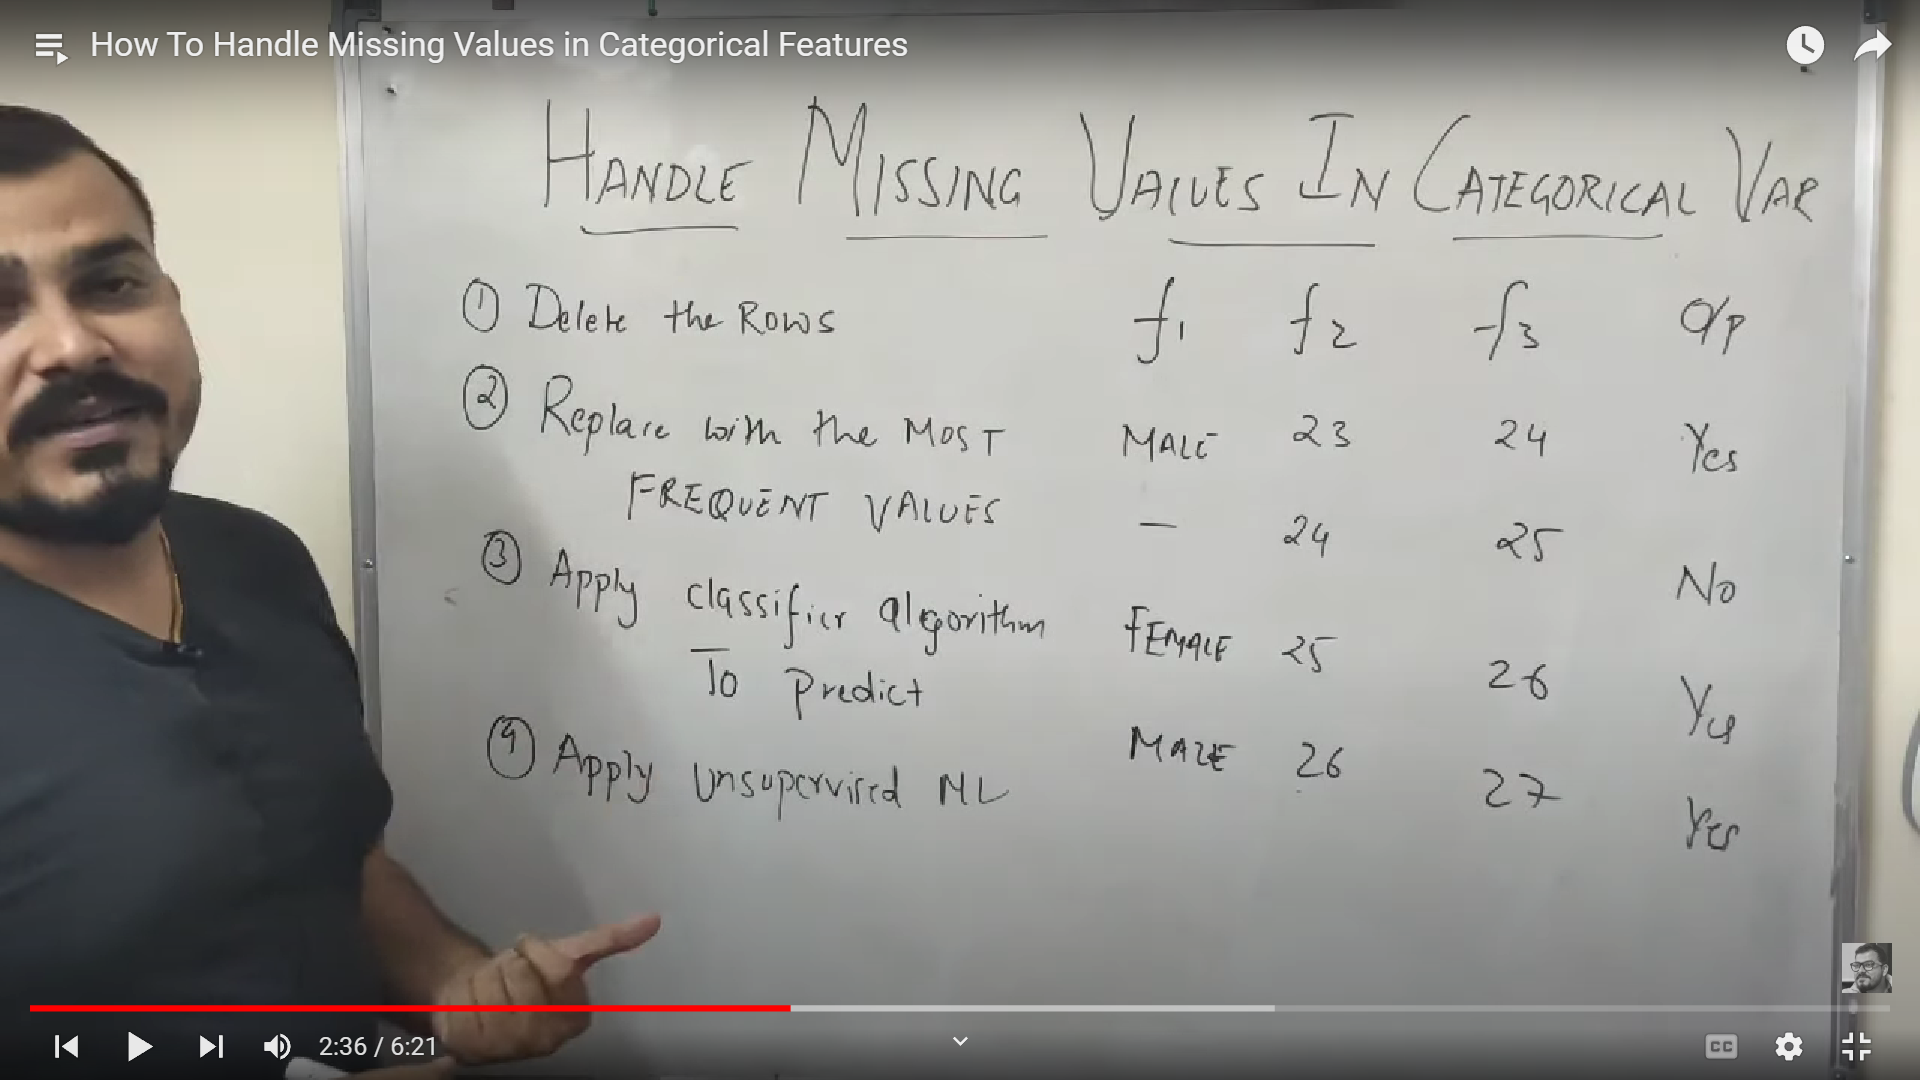 How To Handle Missing Values in Categorical Features
HANDLE MISSING VALUES IN CATEGORICAL VAR
① Delete the Rows
② Replace with the MOST
FREQUENT VALUES
③ Apply classifier algorithm
To predict
④ Apply Unsupervised ML
f1 f2 f3 O/p
MALE 23 24 Yes
— 24 25 No
FEMALE 25 26 Yes
MALE 26 27 Yes
2:36 / 6:21
CC